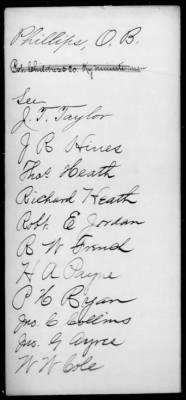 Phillips, O. B.
See
J. T. Taylor
J R Hines
Thos. Heath
Richard Heath
Robt. E Jordan
B. W. Friend
H A Payne
P. H. Ryan
Jno. C Collins
Jno. G Ayres
W W Cole